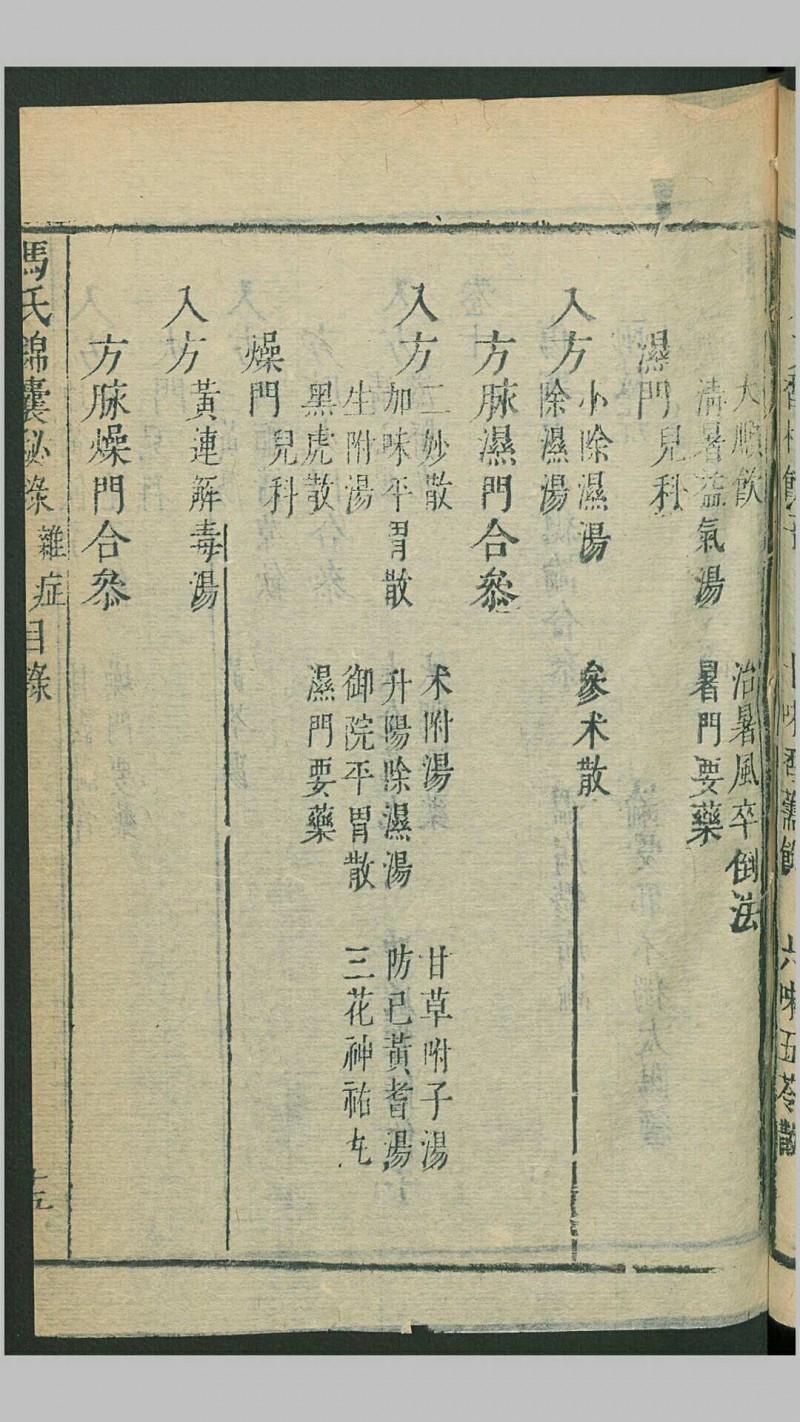 六味五苓散
大順飲　治暑風卒倒法
清暑益氣湯　暑門要藥
濕門兒科
入方
小除濕湯　參术散
除濕湯
方脉濕門合叅
入方
二妙散　术附湯　甘草附子湯
加味平胃散　升陽除濕湯　防已黃耆湯
生附湯　御院平胃散　三花神祐丸
黑虎散　濕門要藥
燥門兒科
入方
黃連解毒湯
方脉燥門合叅
馮氏錦囊秘錄　雜症目錄　十五